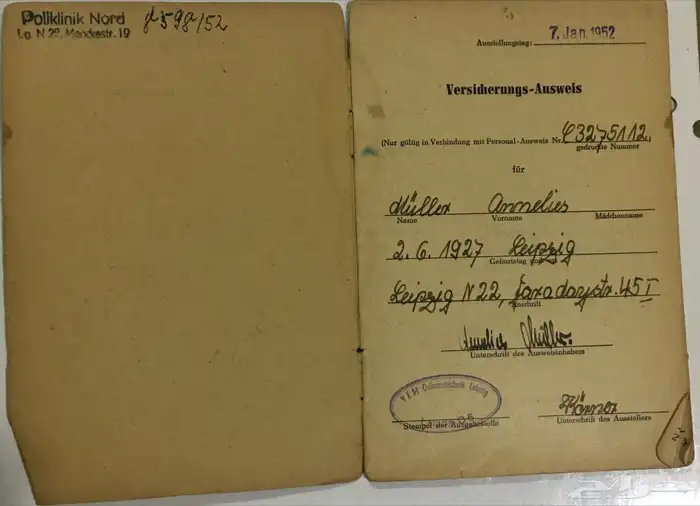 Poliklinik Nord
Lg. N 22, Menckestr. 19
Ausstellungstag: 7. Jan. 1952
Versicherungs-Ausweis
(Nur gültig in Verbindung mit Personal-Ausweis Nr. 3275112
gedruckte Nummer
für
Müller Annelies
Name Vorname Mädchenname
2.6.1927 Leipzig
Geburtstag
Leipzig N 22, Faradaystr. 45 I
Anschrift
Annelies Müller
Unterschrift des Ausweisinhabers
VEM Leipzig
Stempel der Ausgabestelle
Unterschrift des Ausstellers